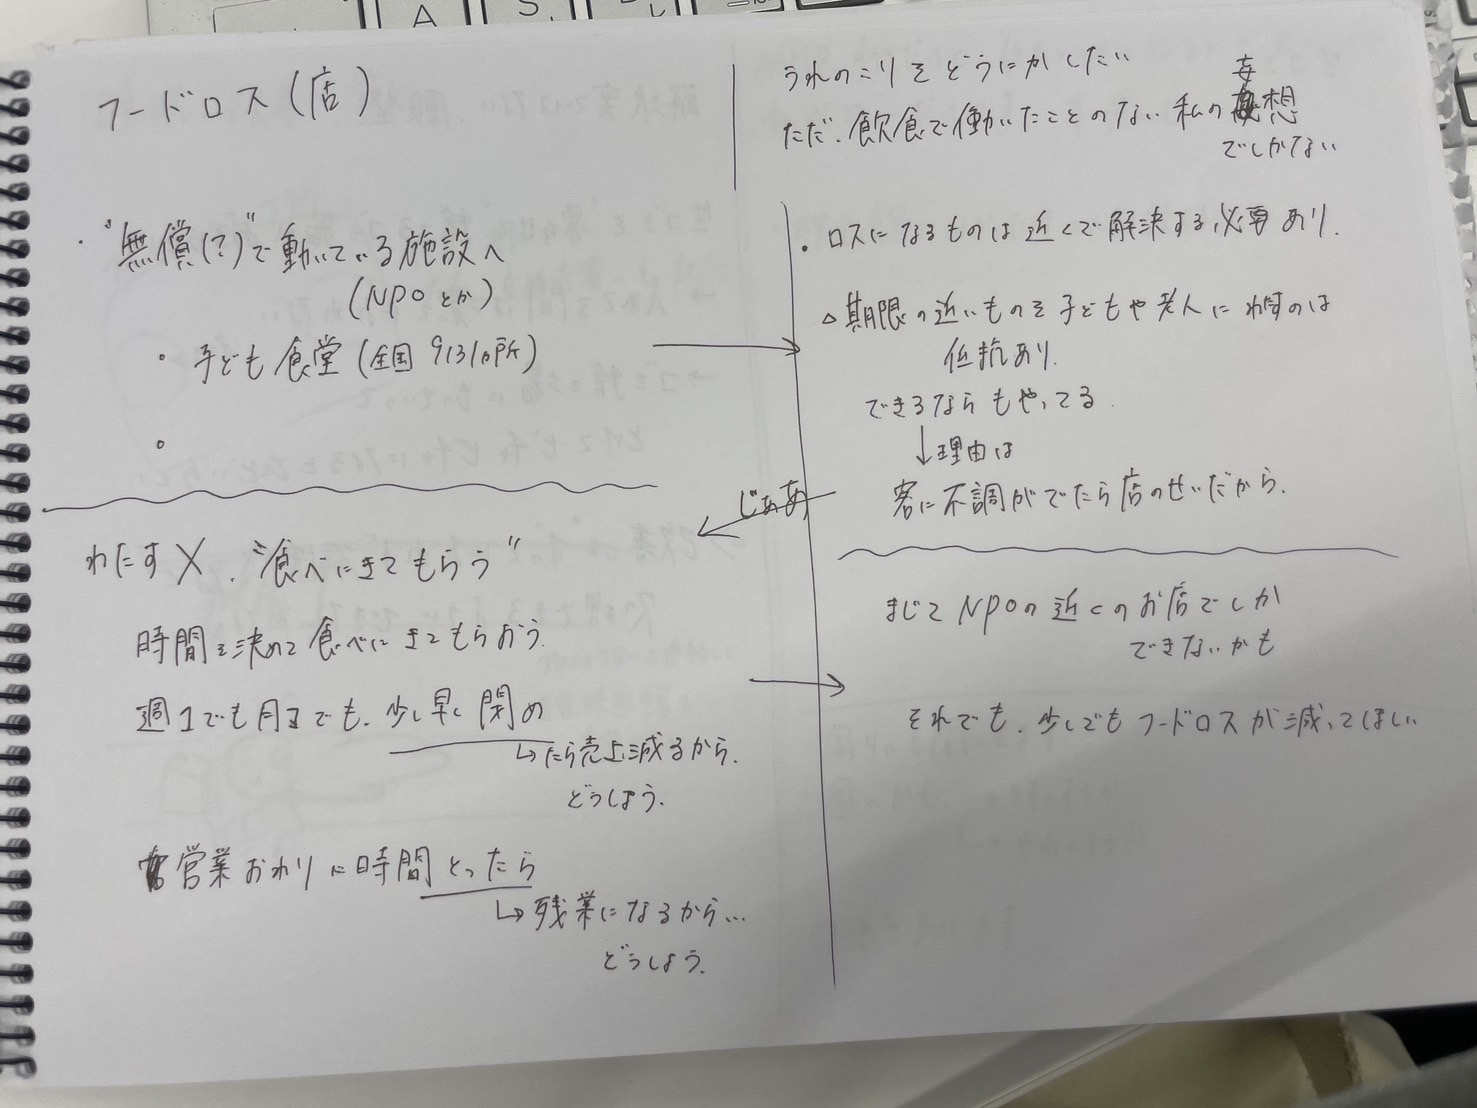 フードロス(店)
うれのこりをどうにかしたい
ただ、飲食で働いたことのない私の妄想
でしかない
・"無償(?)"で動いている施設へ
(NPOとか)
・子ども食堂(全国 9131カ所)
・ロスになるものは近くで解決する必要あり.
△期限の近いものを子どもや老人にわたすのは
低抗あり.
できるならもやってる
↓理由は
客に不調がでたら店のせいだから.
じゃあ
わたす✕. "食べにきてもらう"
時間を決めて食べにきてもらおう.
週1でも月1でも、少し早く閉め
↳たら売上減るから.
どうしよう.
営業おわりに時間とったら
↳残業になるから…
どうしよう.
まじでNPOの近くのお店でしか
できないかも
それでも、少しでもフードロスが減ってほしい
A
S